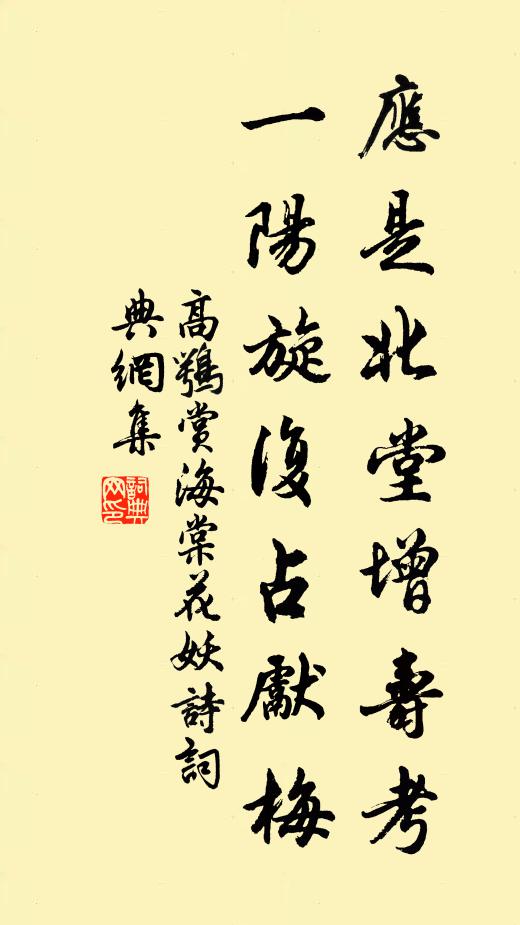 應是北堂增壽考
一陽旋復占獻梅
高鶚賞海棠花妖詩詞
典網集
詞典網印